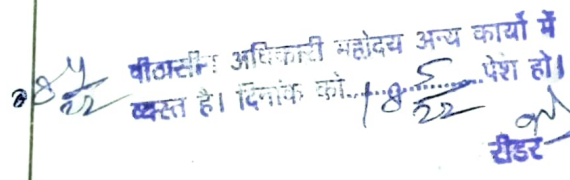 पीठासीन अधिकारी महोदय अन्य कार्यो में
व्यस्त है। दिनांक को....18 5/22....पेश हो।
रीडर